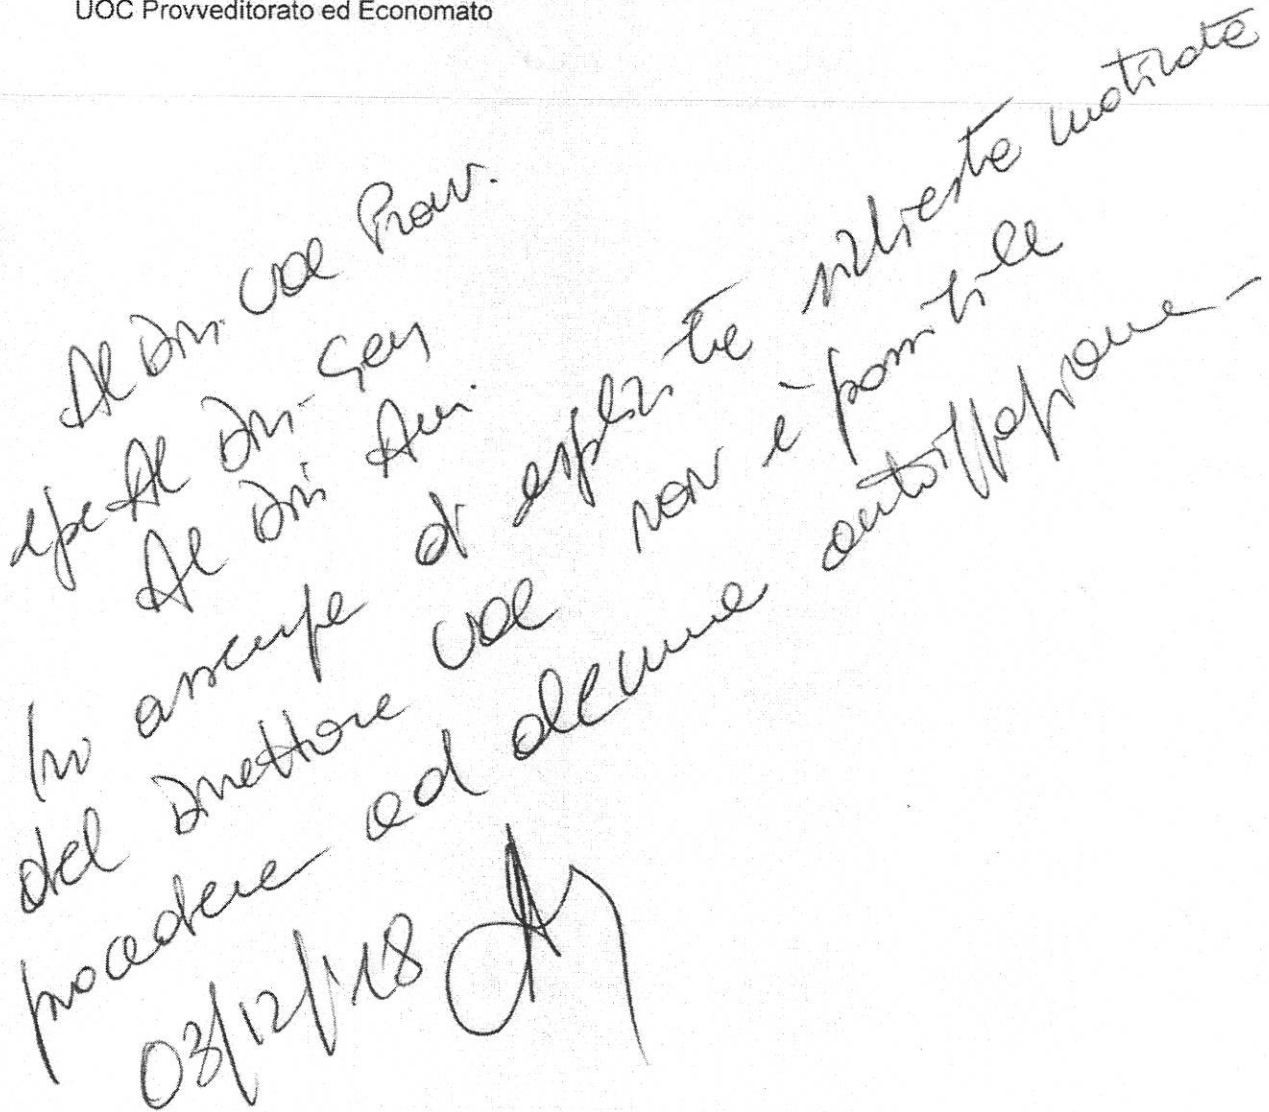 UOC Provveditorato ed Economato
Al Dir. UOC Provv.
e pc Al Dir. Gen
Al Dir. Am.
In assenza di esplicita richiesta motivata
del Direttore UOC non è possibile
procedere ad alcuna
03/12/18